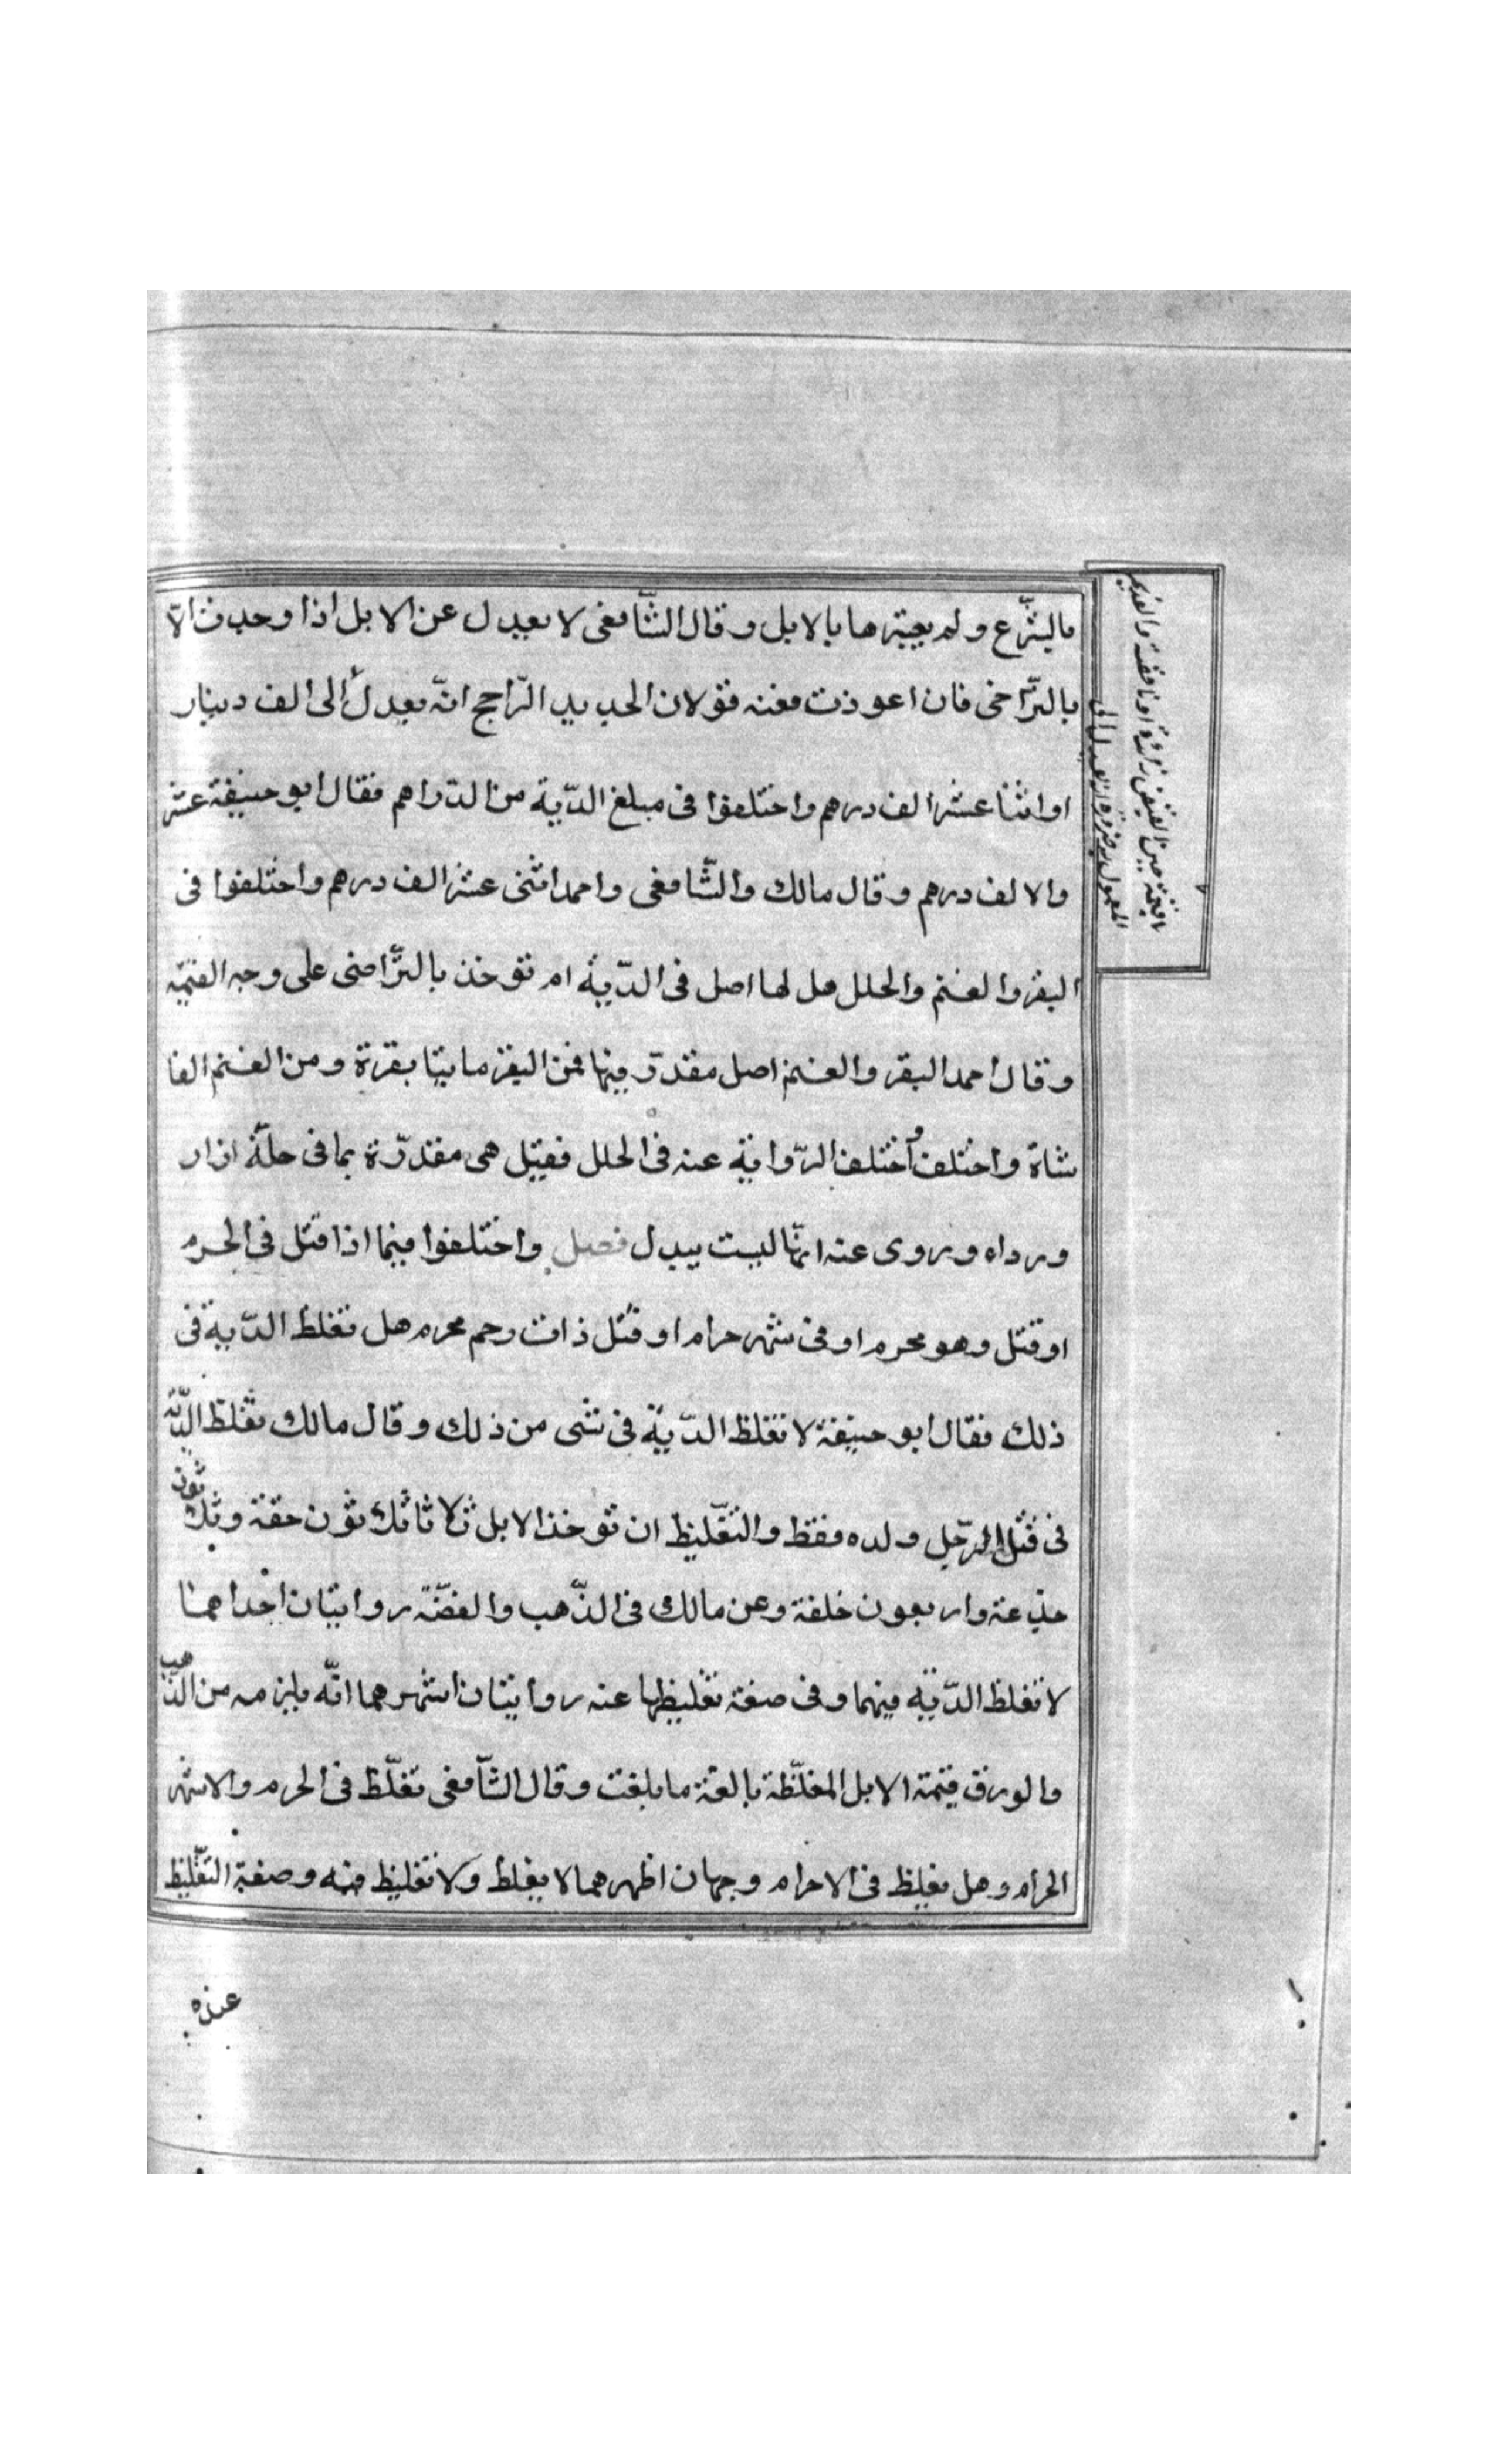 بالشّرع ولم يعتبرها بالابل وقال الشّافعى لا يعدل عن الابل اذا وجدت الّا
بالتّراضى فان اعوذت فعنه قولان الجديد الرّاجح انّه يعدل الى الف دينار
او اثنا عشر الف درهم واختلفوا فى مبلغ الدّية من الدّراهم فقال ابو حنيفة عشر
والالف درهم وقال مالك والشّافعى واحمد اثنى عشر الف درهم واختلفوا فى
البقر والغنم والحلل هل لها اصل فى الدّية ام تؤخذ بالتّراضى على وجه القيمة
وقال احمد البقر والغنم اصل مقدّر فيها فمن البقر مايتا بقرة ومن الغنم الفا
شاة واختلف أختلف الرّواية عنه فى الحلل فقيل هى مقدّرة بمافى حلّة ازار
ورداء وروى عنه انّها ليست ببدل فصل واختلفوا فيما اذا قتل فى الحرم
او قتل وهو محرم او فى شهر حرام او قتل ذات رحم محرم هل تغلظ الدّية فى
ذلك فقال ابو حنيفة لا تغلظ الدّية فى شى من ذلك وقال مالك تغلظ الدّية
فى قتل الرّجل ولده فقط والتّغليظ ان تؤخذ الابل ثلاثا ثلثون حقة وثلثون
جذعة واربعون خلفة وعن مالك فى الذّهب والفضّة روايتان احداهما
لا تغلظ الدّية فيهما وفى صفة تغليظها عنه روايتان اشهرهما انّه يلزمه من الذّهب
والورق قيمة الابل المغلّظة بالغة ما بلغت وقال الشّافعى تغلّظ فى الحرم والاشهر
الحرام وهل يغلظ فى الاحرام وجهان اظهرهما لا يغلظ ولا تغليظ فيه وصفة التّغليظ
عنده
القيمة حين القبض زائدة او ناقصة والقديم
المعمول به ضرورة انّه يعدل الى